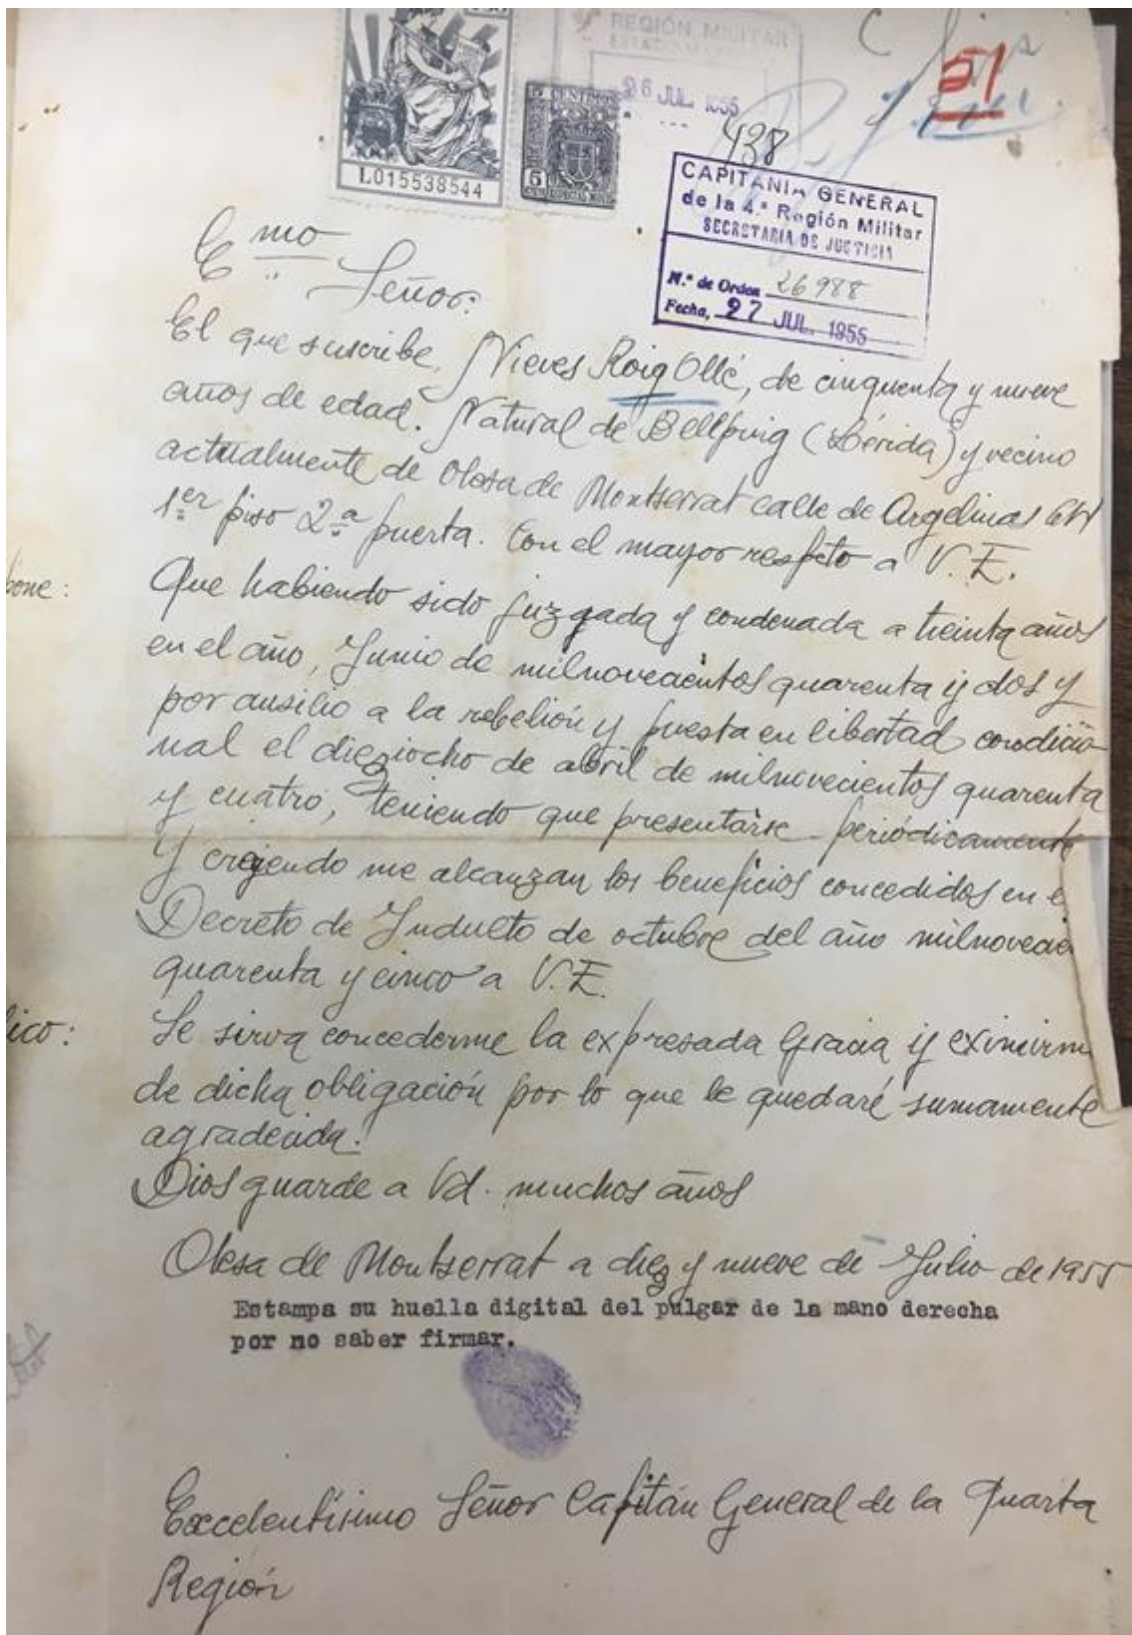 5 CENTIMOS
5
L015538544
REGIÓN MILITAR
26 JUL. 1955
51
438
CAPITANIA GENERAL
de la 4.ª Región Militar
SECRETARIA DE JUSTICIA
N.º de Orden 26988
Fecha, 27 JUL. 1955
Emo
Señor:
El que suscribe, Nieves Roig Ollé, de cinquenta y nueve
años de edad. Natural de Bellpuig (Lérida) y vecino
actualmente de Olesa de Montserrat calle de Argelinas 64
1er piso 2ª puerta. Con el mayor respeto a V.E.
pone:
Que habiendo sido juzgada y condenada a treinta años
en el año, Junio de milnovecientos quarenta y dos y
por ausilio a la rebelión y puesta en libertad condicio-
nal el dieziocho de abril de milnovecientos quarenta
y cuatro, teniendo que presentarse periódicamente
Y creyendo me alcanzan los beneficios concedidos en e
Decreto de Indulto de octubre del año milnovecie
quarenta y cinco a V.E.
lico:
Se sirva concederme la expresada Gracia y eximirm
de dicha obligación por lo que le quedaré sumamente
agradecida.
Dios guarde a Vd. muchos años
Olesa de Montserrat a diez y nueve de Julio de 1955
Estampa su huella digital del pulgar de la mano derecha
por no saber firmar.
Excelentísimo Señor Capitán General de la Quarta
Región